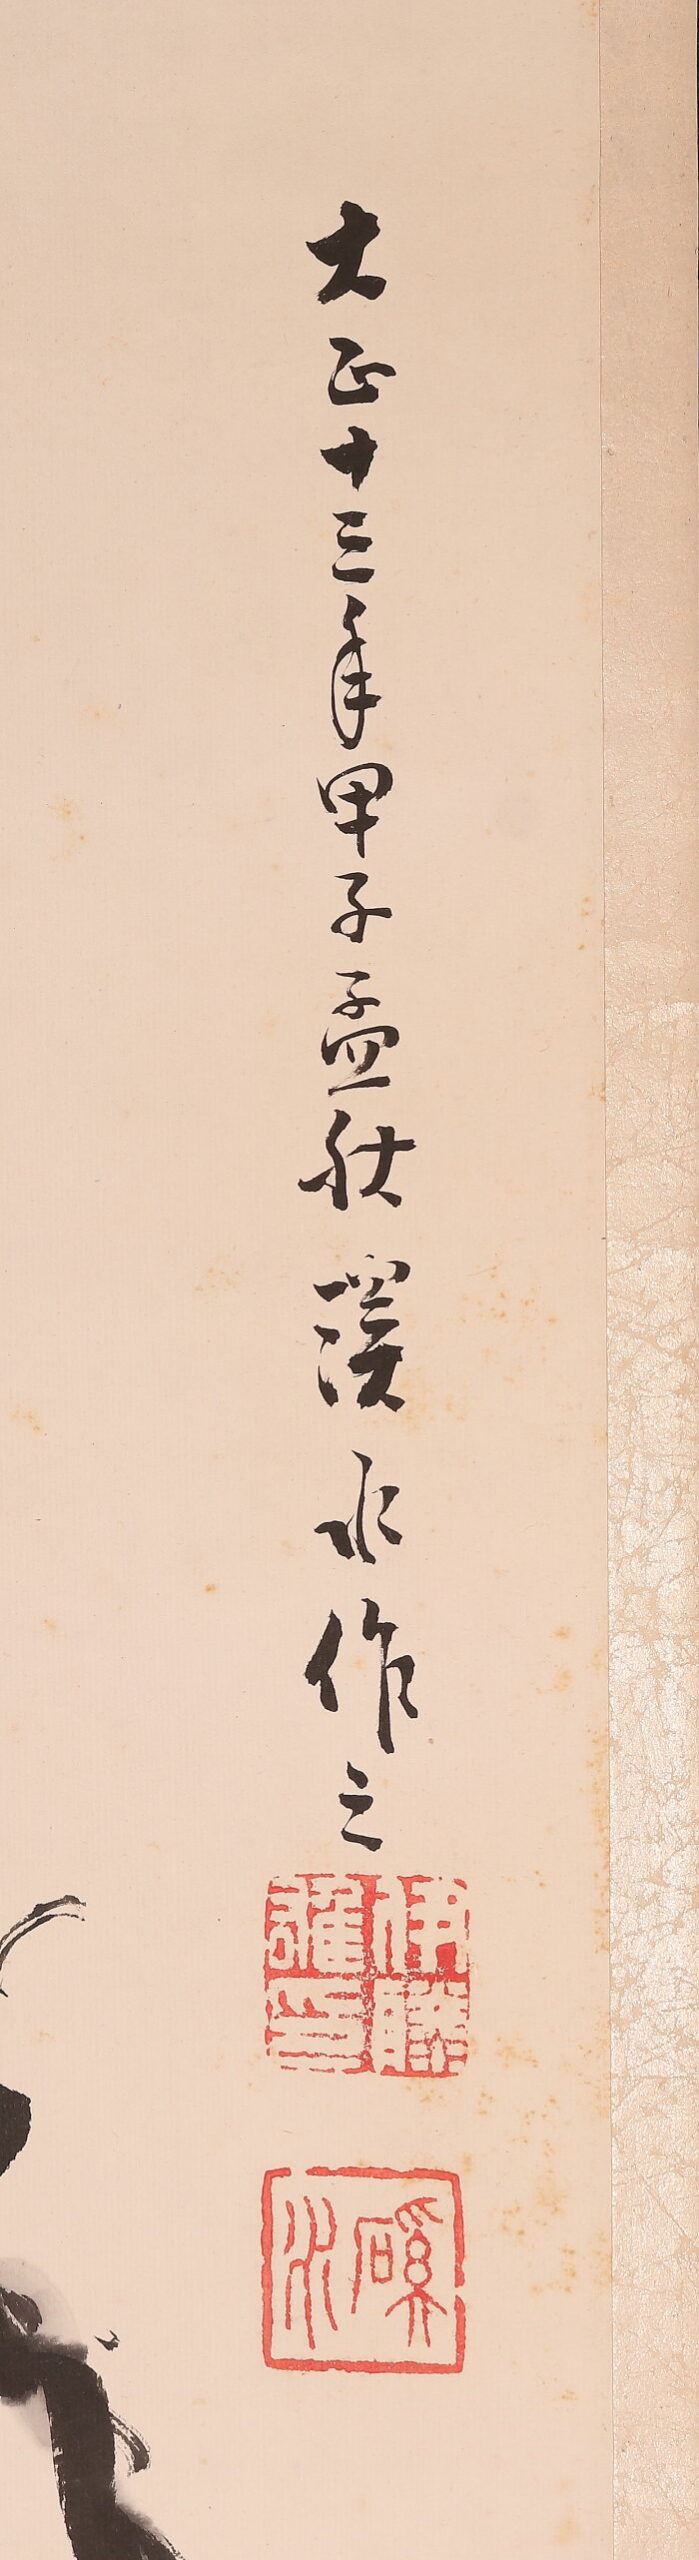 大正十三年甲子孟秋溪水作之
伊藤印
磎水